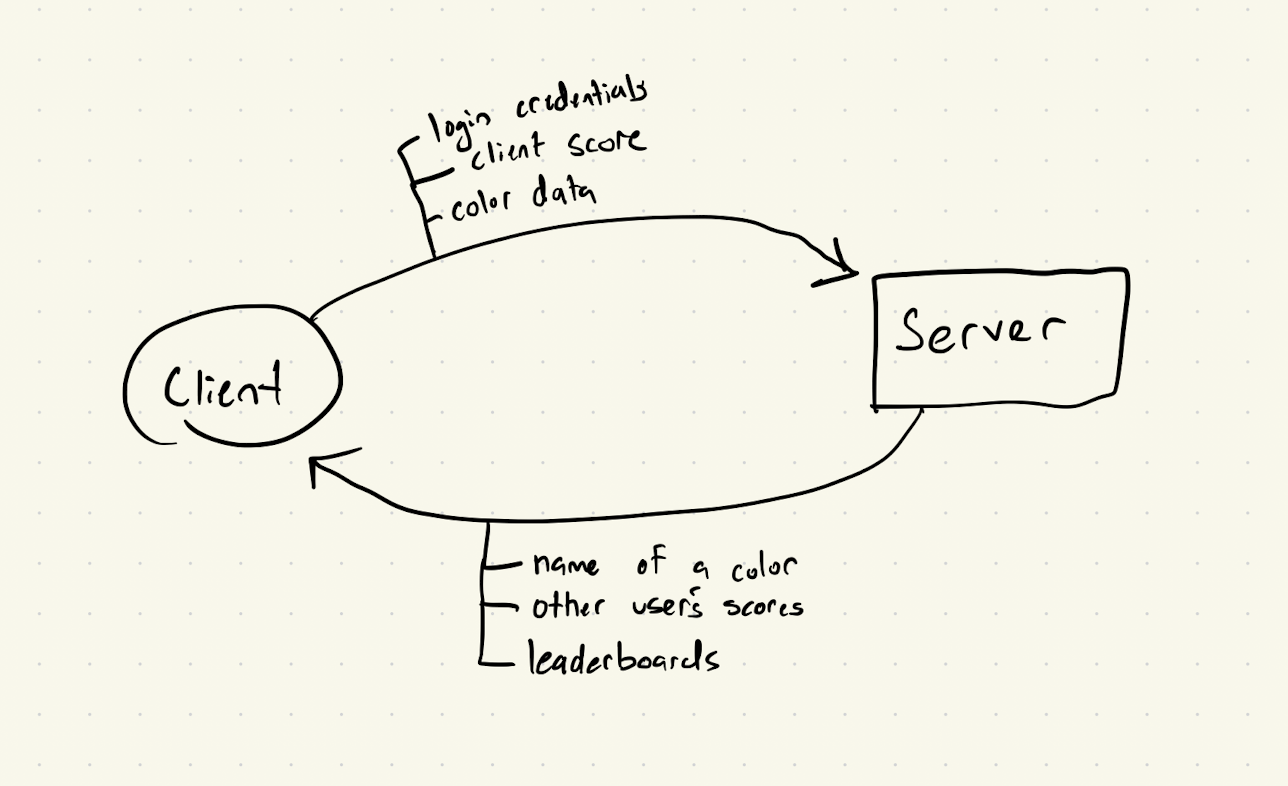 login credentials
client score
color data
Client
Server
name of a color
other user's scores
leaderboards